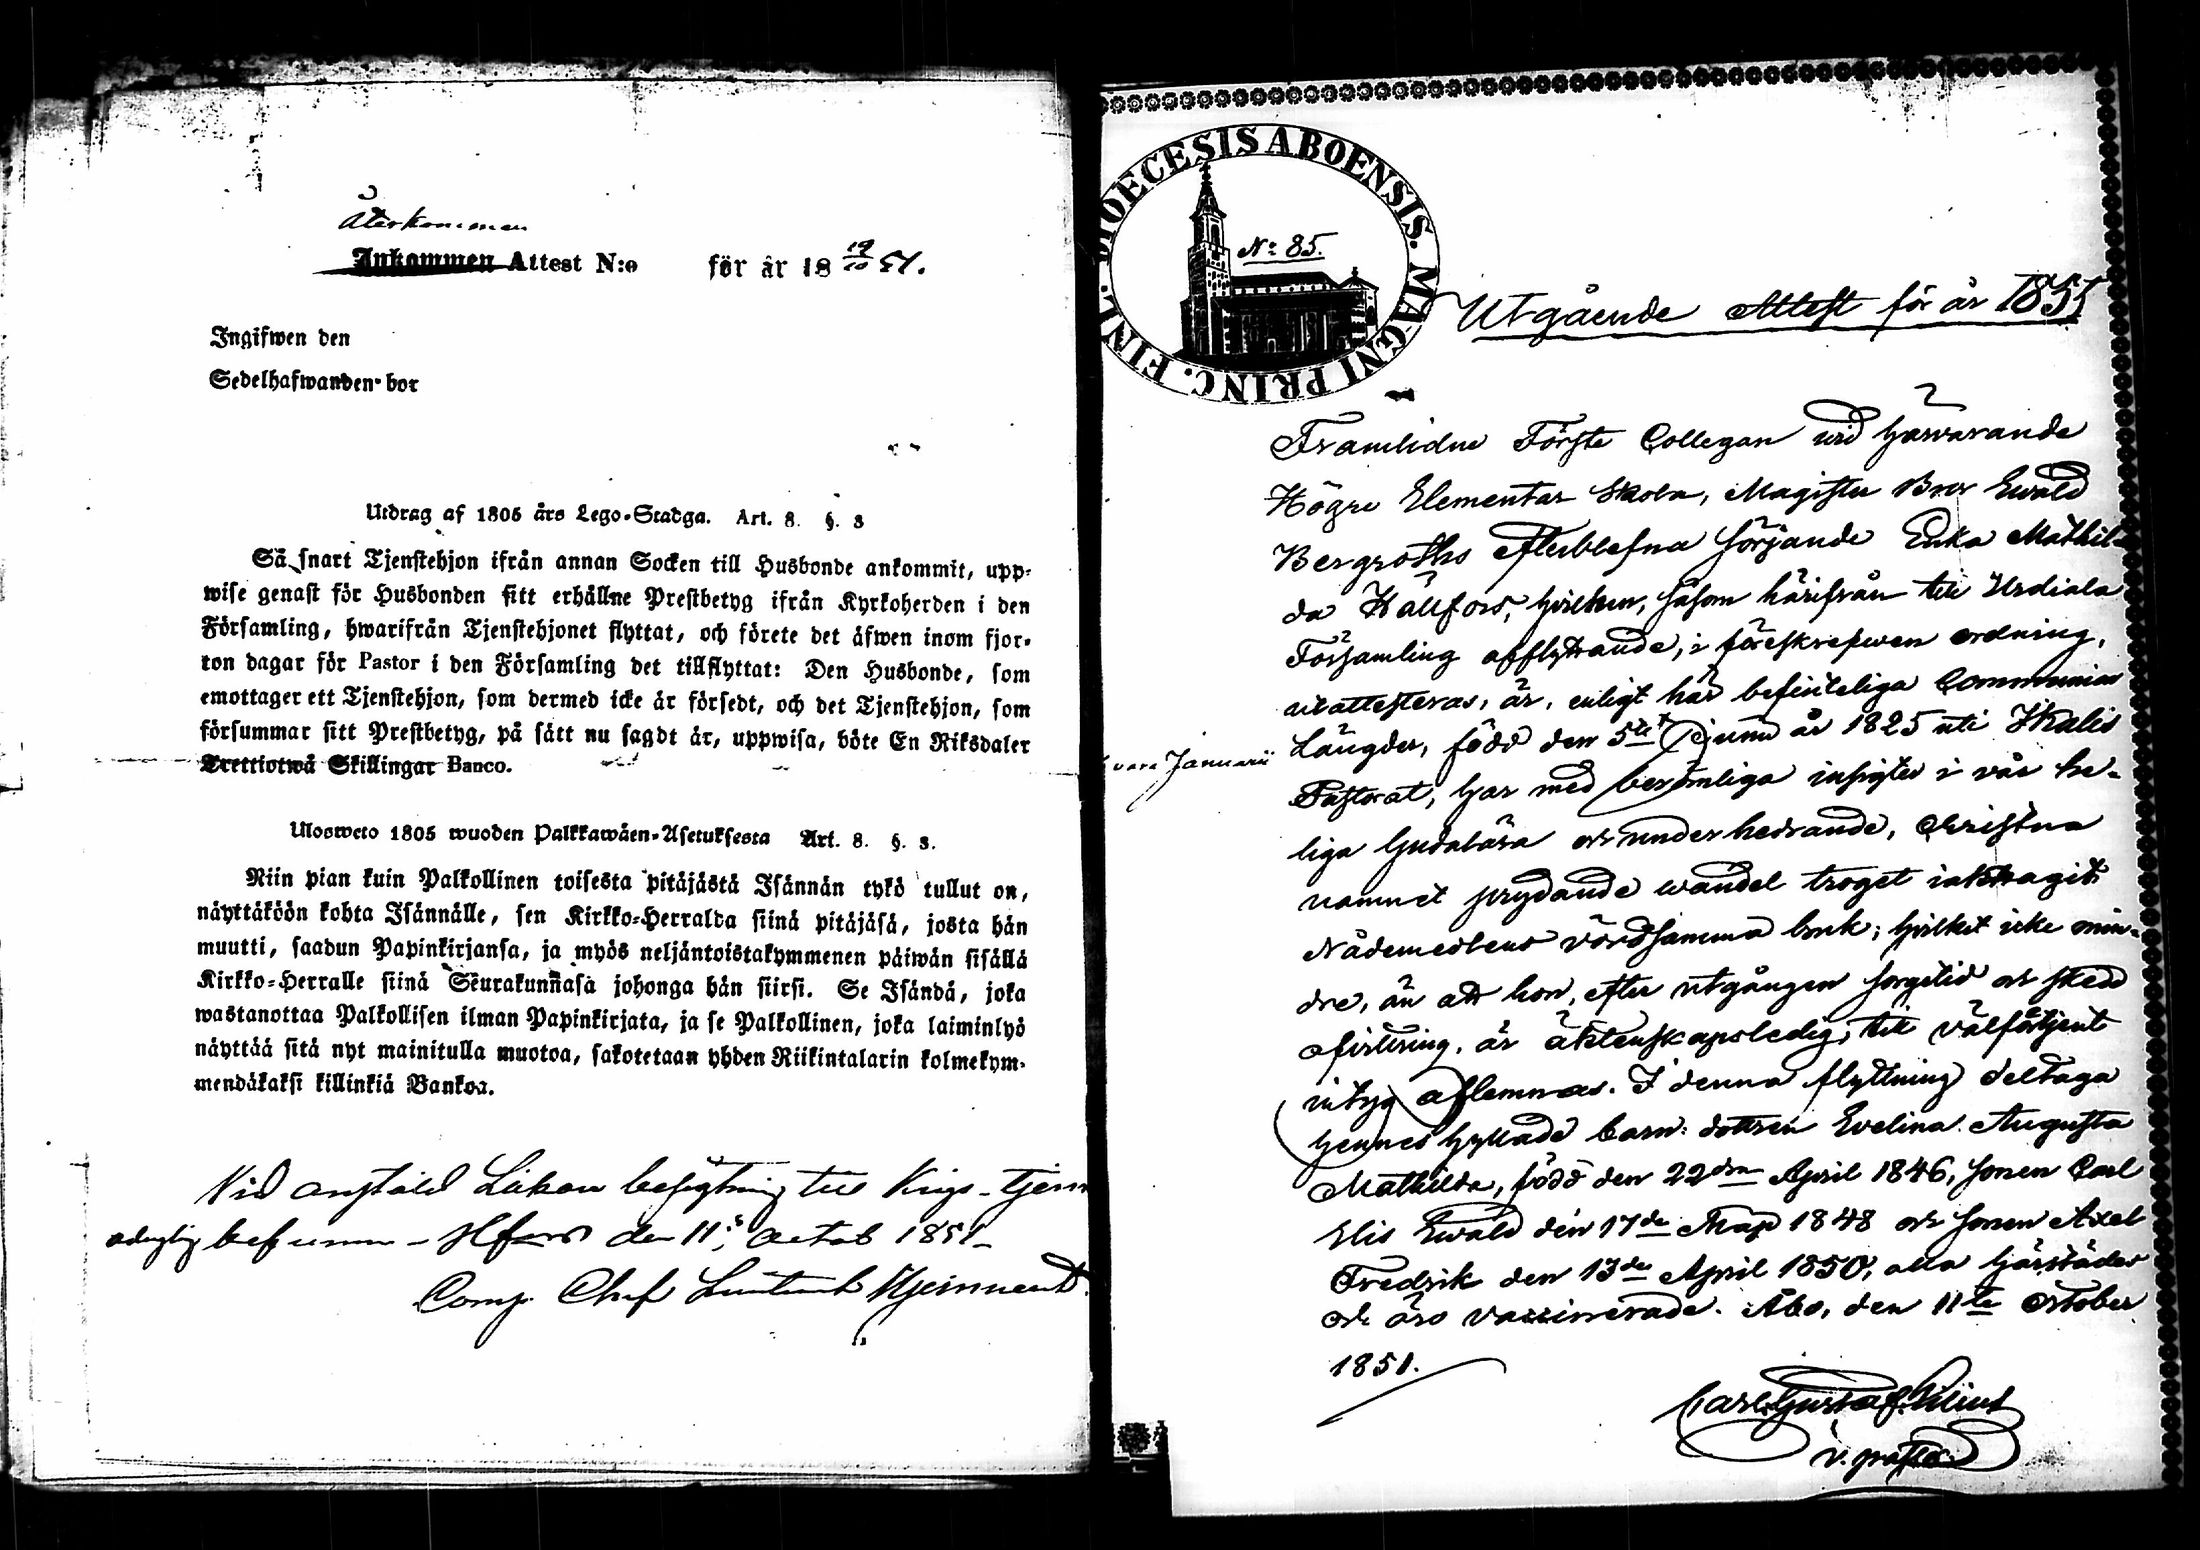 Återkommen
Inkommen Attest N:o för år 18 19/10 51.
Ingifwen den
Sedelhafwanden bor
Utdrag af 1805 års Lego-Stadga. Art. 8. §. 3
Så snart Tjenstehjon ifrån annan Socken till Husbonde ankommit, upp-
wise genast för Husbonden sitt erhållne Prestbetyg ifrån Kyrkoherden i den
Församling, hwarifrån Tjenstehjonet flyttat, och förete det äfwen inom fjor-
ton dagar för Pastor i den Församling det tillflyttat: Den Husbonde, som
emottager ett Tjenstehjon, som dermed icke är försedt, och det Tjenstehjon, som
försummar sitt Prestbetyg, på sätt nu sagdt är, uppwisa, böte En Riksdaler
Trettiotwå Skillingar Banco.
Ulosweto 1805 wuoden Palkkawäen-Asetuksesta Art. 8. §. 3.
Niin pian kuin Palkollinen toisesta pitäjästä Isännän tykö tullut on,
näyttäköön kohta Isännälle, sen Kirkko-Herralda siinä pitäjäsä, josta hän
muutti, saadun Papinkirjansa, ja myös neljäntoistakymmenen päiwän sisällä
Kirkko-Herralle siinä Seurakunnasa johonga hän siirsi. Se Isändä, joka
wastanottaa Palkollisen ilman Papinkirjata, ja se Palkollinen, joka laiminlyö
näyttää sitä nyt mainitulla muotoa, sakotetaan yhden Riikintalarin kolmekym-
mendäkaksi killinkiä Bankoa.
Vid anstäld Läkare besigtning till Krigs-tjenst
oduglig befunnen - Hfors den 11 Octob 1851 -
Comp. Chef
DIOECESIS ABOENSIS. MAGNI PRINC. FINL.
N:o 85.
Utgående Attest för år 1851
Framlidne Förste Collegan wid härvarande
Högre Elementar Skola, Magister Bror Ewald
Bergroths efterblefna sörjande Enka Mathil-
da Hällfors, hvilken, såsom härifrån till Urdiala
Församling afflyttande, i föreskrefwen ordning,
utattesteras, är, enligt här befinteliga Communion
Längder, född den 5te Junii år 1825 uti Ikalis
vara Januarii
Pastorat, har med berömliga insigter i vår he-
liga Gudalära och under hedrande, Christna
namnet prydande wandel troget iakttagit
Nådemedlens vördsamma bruk; hvilket icke min-
dre, än att hon, efter utgången sorgetid och skedd
afvittring, är äktenskapsledig, till välförtjent
intyg aflemnas. I denna flyttning deltaga
hennes hyllade barn: dottren Evelina Augusta
Mathilda, född den 22dra April 1846, sonen Carl
Elis Ewald den 17de Maji 1848 och sonen Axel
Fredrik den 13de April 1850, alla härstädes
och äro vaccinerade. Åbo, den 11te October
1851.
Carl Gustaf
v. pastor